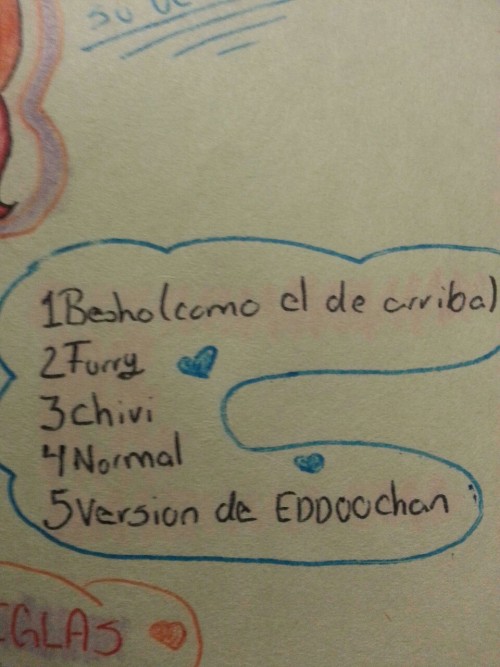 su de
1Besho(como el de arriba)
2Furry
3chivi
4Normal
5version de EDDOOchan
EGLAS